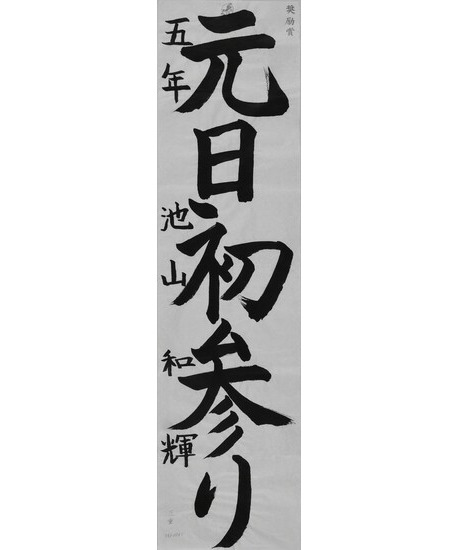 奨励賞
元日初参り
五年 池山 和輝